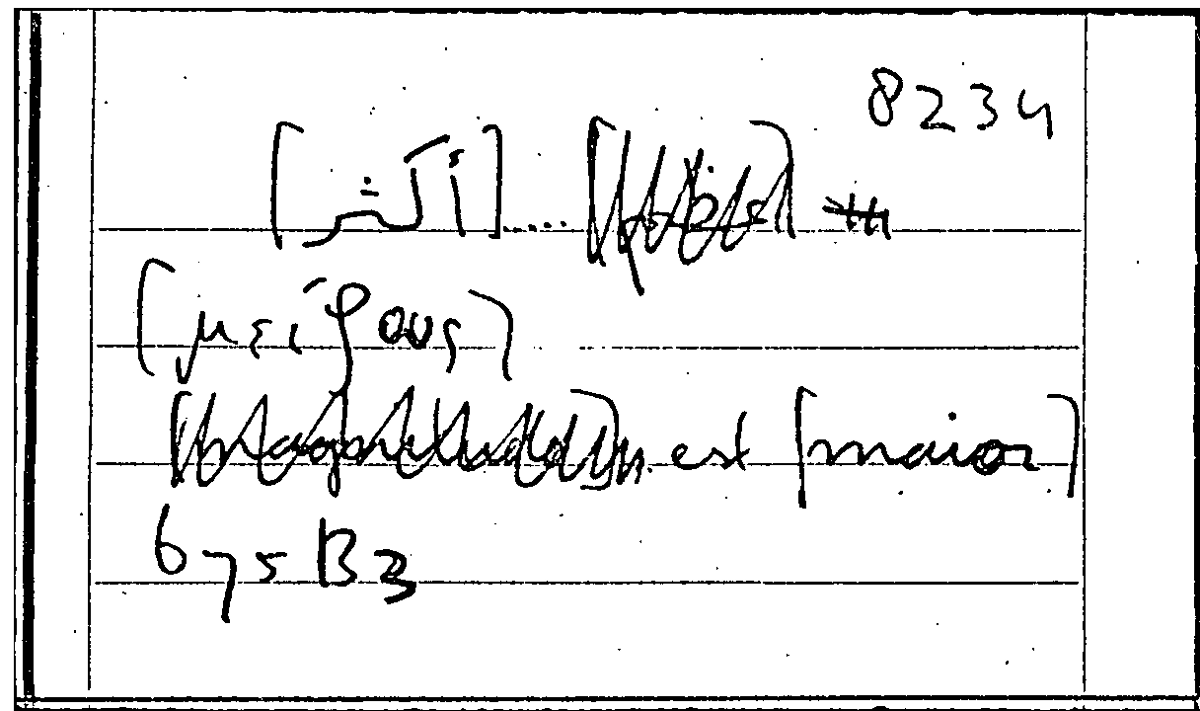 8234
[أكثر].....
[μείζους]
est [maior]
675B3